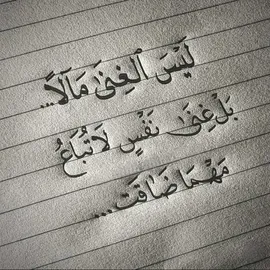 لَيْسَ ٱلْغِنَىٰ مَالًا...
بَلْ غِنَىٰ نَفْسٍ لَا تُبَاعُ
مَهْمَا ضَاقَت...